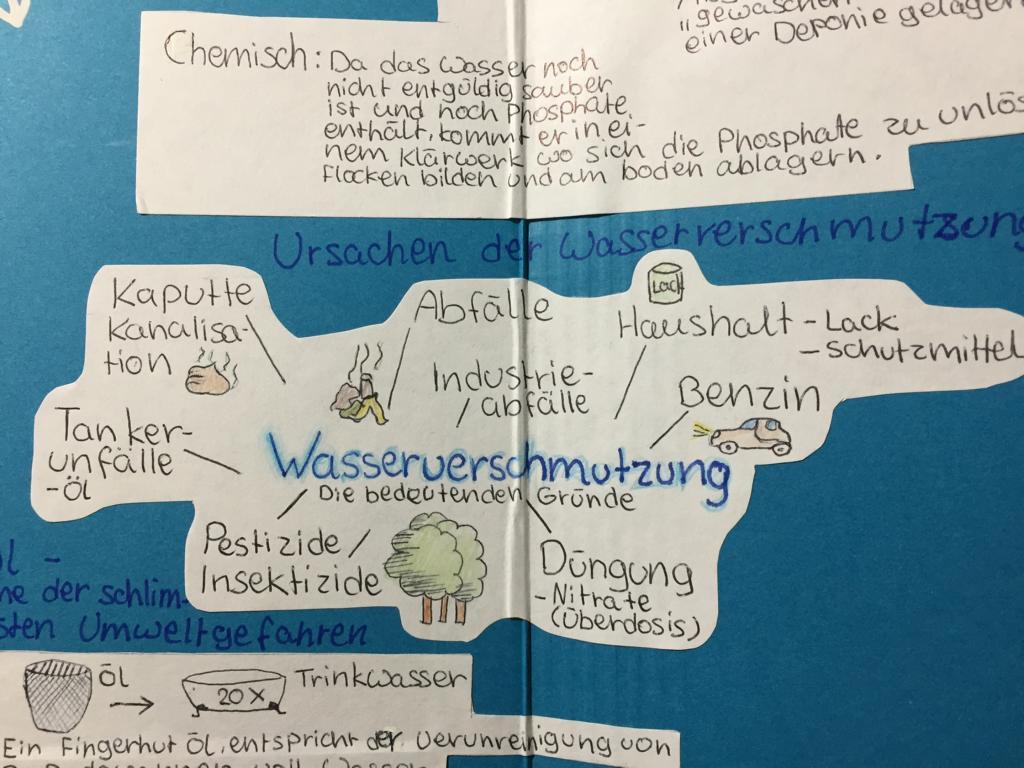 "gewaschen
einer Deponie gelager
Chemisch: Da das Wasser noch
nicht entgüldig sauber
ist und noch Phosphate
enthält, kommt er in ei-
nem Klärwerk wo sich die Phosphate zu unlös
Flocken bilden und am boden ablagern.
Ursachen der Wasserverschmutzung
Kaputte
Kanalisa-
tion
Abfälle
Industrie-
abfälle
Lack
Haushalt - Lack
- Schutzmittel
Benzin
Tanker-
unfälle
- Öl
Wasserverschmutzung
Die bedeutenden Gründe
Pestizide /
Insektizide
Düngung
- Nitrate
(Überdosis)
l -
ne der schlim-
sten Umweltgefahren
Öl
20 X
Trinkwasser
Ein Fingerhut Öl, entspricht der Verunreinigung von